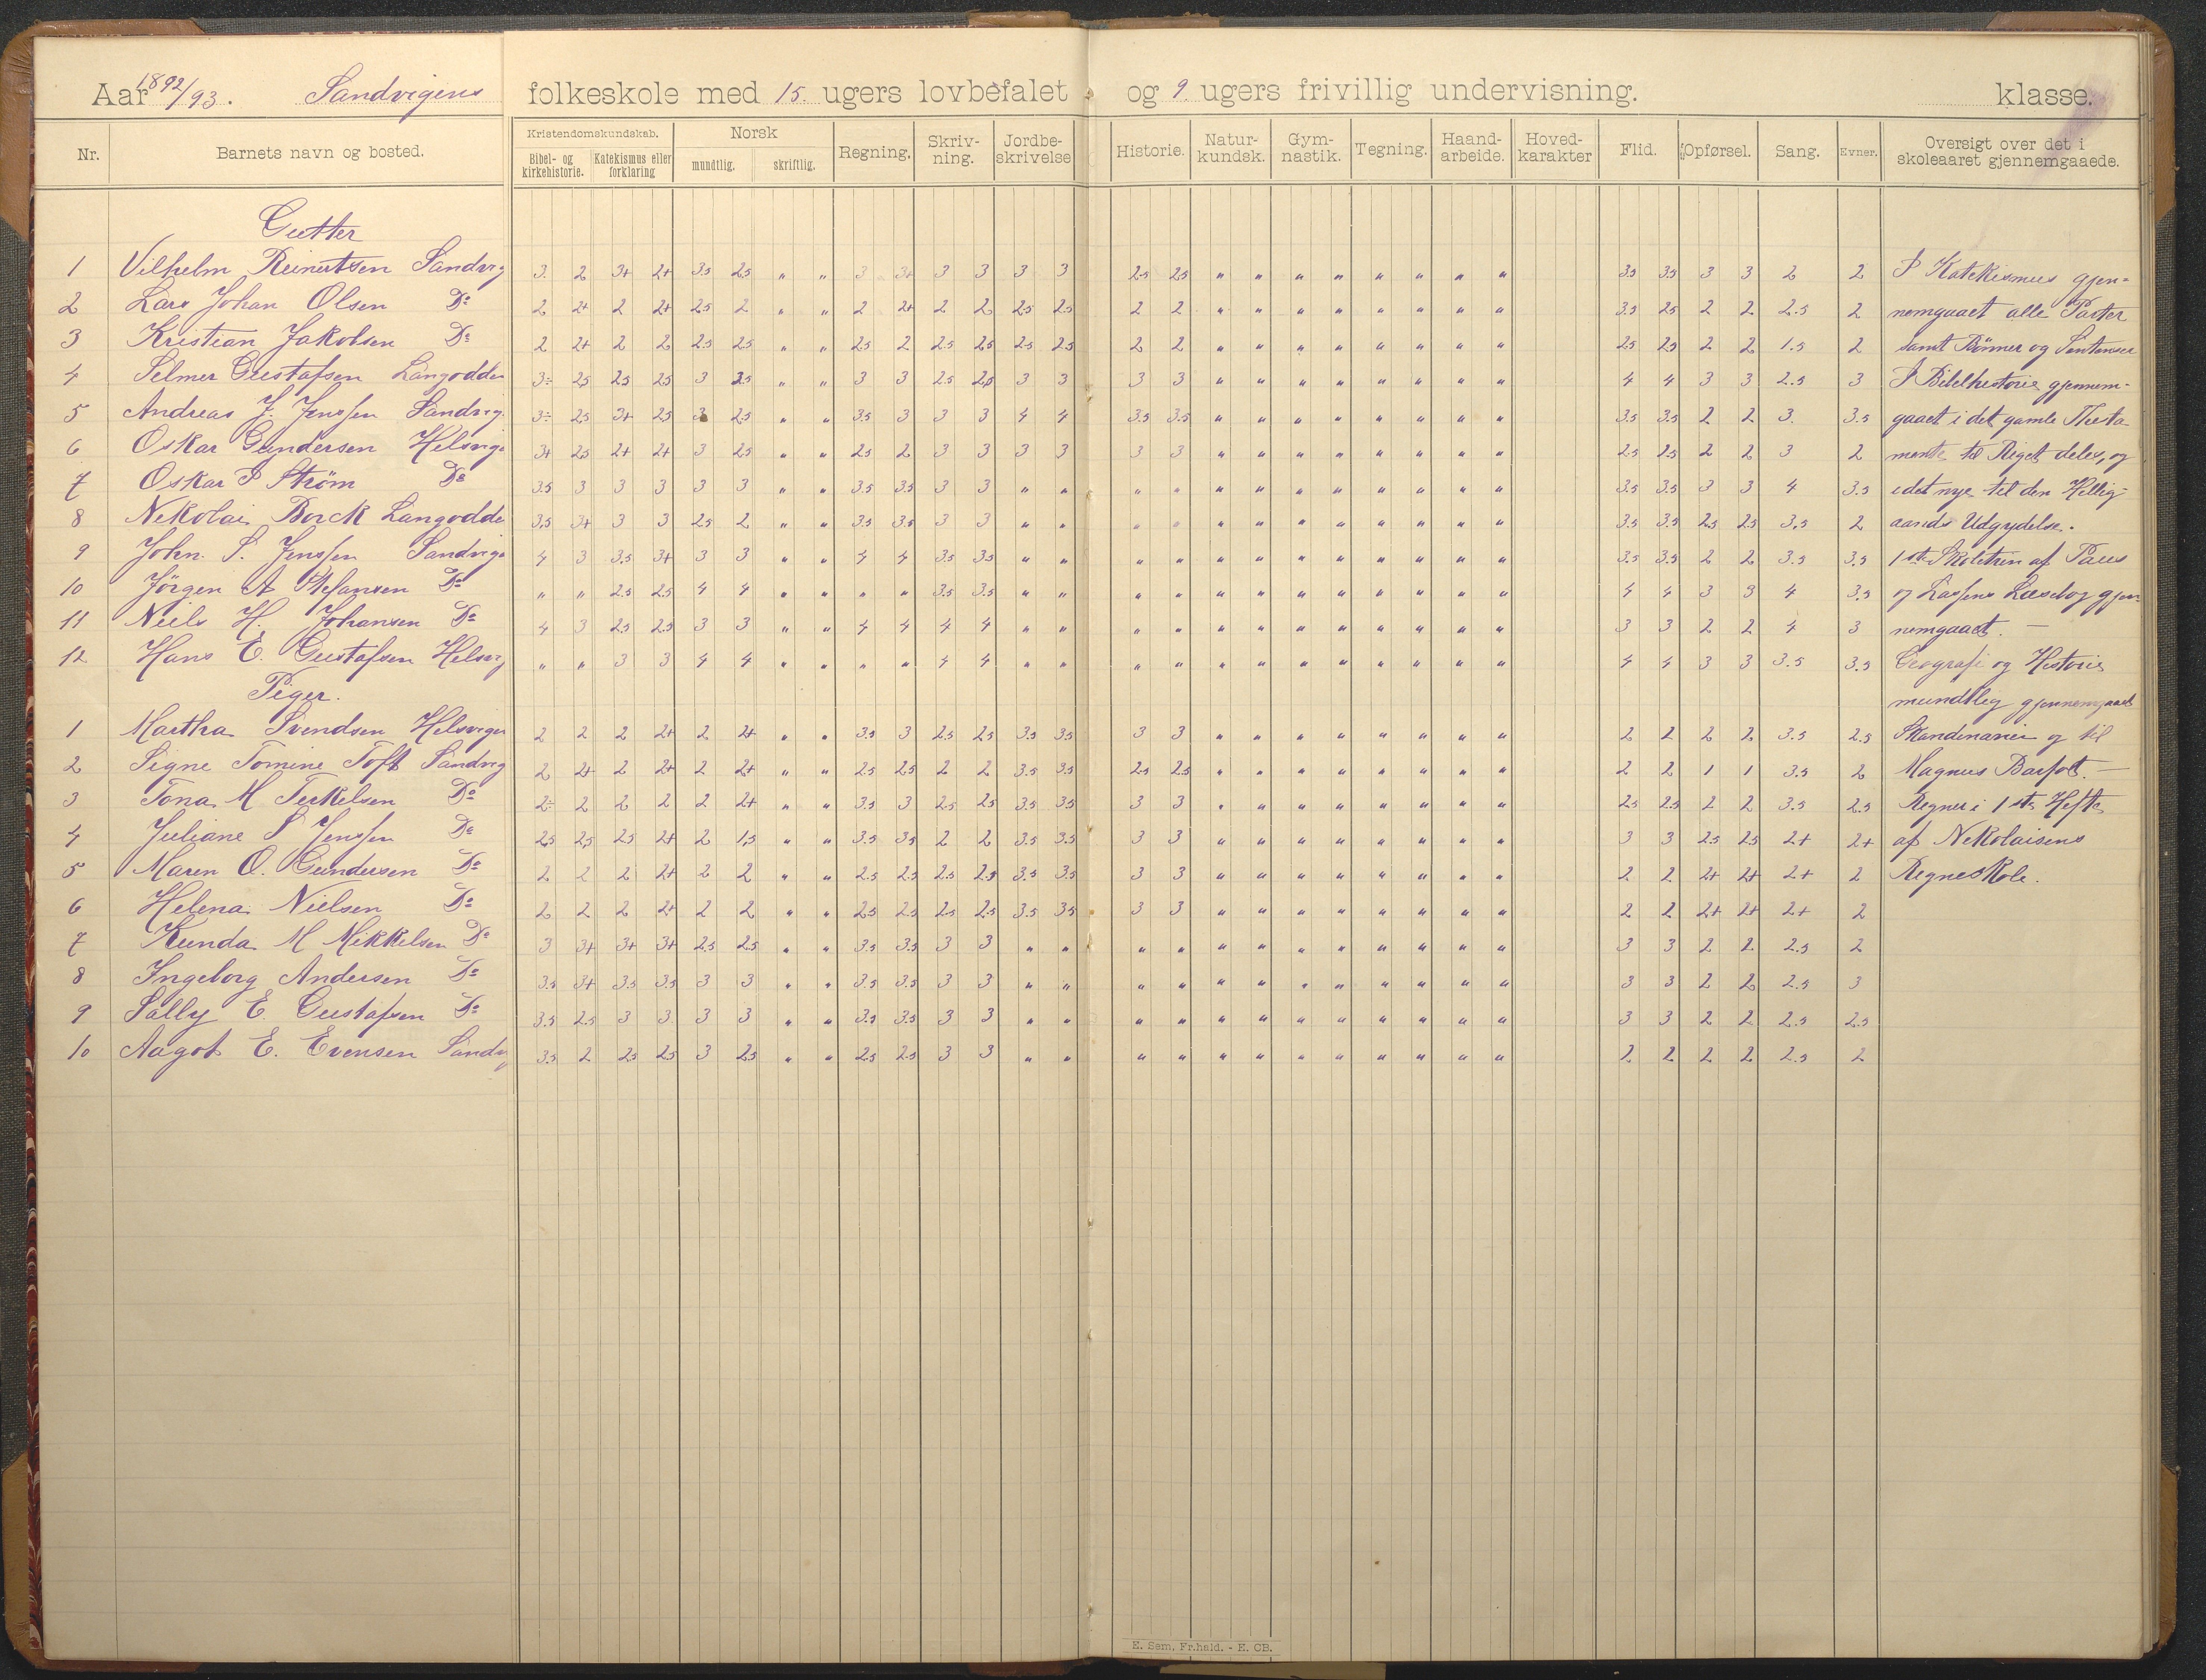 Aar 1892/93. Sandvigens folkeskole med 15. ugers lovbefalet og 9. ugers frivillig undervisning. klasse.
Nr. Barnets navn og bosted. Kristendomskundskab. Norsk Regning. Skriv-ning. Jordbe-skrivelse Historie. Natur-kundsk. Gym-nastik. Tegning. Haand-arbeide. Hoved-karakter Flid. Opførsel. Sang. Evner. Oversigt over det i skoleaaret gjennemgaaede.
Bibel- og kirkehistorie. Katekismus eller forklaring mundtlig. skriftlig.
Gutter
1 Vilhelm Reinertsen Sandvig 3. 2 3+ 2+ 3.5 2.5 " " 3 3+ 3 3 3 3 2.5 2.5 " " " " " " " " 3.5 3.5 3 3 2 2 I Katekismus gjen-
2 Lars Johan Olsen Do 2 2+ 2 2+ 2.5 2 " " 2 2+ 2 2 2.5 2.5 2 2 " " " " " " " " 3.5 2.5 2 2 2.5 2 nemgaaet alle Parter
3 Kristian Jakobsen Do 2 2+ 2 2 2.5 2.5 " " 2.5 2 2.5 2.5 2.5 2.5 2 2 " " " " " " " " 2.5 2.5 2 2 1.5 2 samt Bønner og Sentenser
4 Selmer Gustafsen Langodden 3÷ 2.5 2.5 2.5 3 2.5 " " 3 3 2.5 2.5 3 3 3 3 " " " " " " " " 4 4 3 3 2.5 3 I Bibelhistorie gjennem-
5 Andreas J. Jenssen Sandvig. 3÷ 2.5 3+ 2.5 3 2.5 " " 3.5 3 3 3 4 4 3.5 3.5 " " " " " " " " 3.5 3.5 2 2 3. 3.5 gaaet i det gamle Thesta
6 Oskar Gundersen Helsvige 3+ 2.5 2+ 2+ 3 2.5 " " 2.5 2 3 3 3 3 3 3 " " " " " " " " 2.5 2.5 2 2 3 2 mente til Riget deles, og
7 Oskar P Strøm Do 3.5 3 3 3 3 3 " " 3.5 3.5 3 3 " " " " " " " " " " " " 3.5 3.5 3 3 4 3.5 i det nye til den Hellig-
8 Nekolai Borck Langodde 3.5 3+ 3 3 2.5 2 " " 3.5 3.5 3 3 " " " " " " " " " " " " 3.5 3.5 2.5 2.5 3.5 2 aands Udgydelse.
9 John. S. Jenssen Sandvige 4 3 3.5 3+ 3 3 " " 4 4 3.5 3.5 " " " " " " " " " " " " 3.5 3.5 2 2 3.5 3.5 1ste Skoletrin af Paus
10 Jörgen A Stefansen Do " " 2.5 2.5 4 4 " " " " 3.5 3.5 " " " " " " " " " " " " 4 4 3 3 4 3.5 og Lassens Læsebog gjen-
11 Niels H. Johansen Do 4 3 2.5 2.5 3 3 " " 4 4 4 4 " " " " " " " " " " " " 3 3 2 2 4 3 nemgaaet. —
12 Hans E. Gustafsen Helsvig " " 3 3 4 4 " " " " 4 4 " " " " " " " " " " " " 4 4 3 3 3.5 3.5 Geografi og Historie
Piger. mundtlig gjennemgaaet
1 Martha Svendsen Helsvigen 2 2 2 2+ 2 2+ " " 3.5 3 2.5 2.5 3.5 3.5 3 3 " " " " " " " " 2 2 2 2 3.5 2.5 Skandinavien og til
2 Signe Tomine Toft Sandvig 2 2+ 2 2+ 2 2+ " " 2.5 2.5 2 2 3.5 3.5 2.5 2.5 " " " " " " " " 2 2 1 1 3.5 2 Magnus Barfot. —
3 Tona M Terkelsen Do 2÷ 2 2 2 2 2+ " " 3.5 3 2.5 2.5 3.5 3.5 3 3 " " " " " " " " 2.5 2.5 2 2 3.5 2.5 Regner i 1ste Hefte
4 Juliane S Jenssen Do 2.5 2.5 2.5 2+ 2 1.5 " " 3.5 3.5 2 2 3.5 3.5 3 3 " " " " " " " " 3 3 2.5 2.5 2+ 2+ af Nekolaisens
5 Maren O. Gundersen Do 2 2 2 2+ 2 2 " " 2.5 2.5 2.5 2.5 3.5 3.5 3 3 " " " " " " " " 2 2 2+ 2+ 2+ 2 Regneskole.
6 Helena Nielsen Do 2 2 2 2+ 2 2 " " 2.5 2.5 2.5 2.5 3.5 3.5 3 3 " " " " " " " " 2 2 2+ 2+ 2+ 2
7 Kunda M Mikkelsen Do 3 3+ 3+ 3+ 2.5 2.5 " " 3.5 3.5 3 3 " " " " " " " " " " " " 3 3 2 2 2.5 2
8 Ingeborg Andersen Do 3.5 3+ 3.5 3.5 3 3 " " 3.5 3.5 3 3 " " " " " " " " " " " " 3 3 2 2 2.5 3
9 Sally E. Gustafsen Do 3.5 2.5 3 3 3 3 " " 3.5 3.5 3 3 " " " " " " " " " " " " 3 3 2 2 2.5 2.5
10 Aagot E. Evensen Sandv 3.5 2 2.5 2.5 3 2.5 " " 2.5 2.5 3 3 " " " " " " " " " " " " 2 2 2 2 2.5 2
E. Sem, Fr.hald. - E. CB.